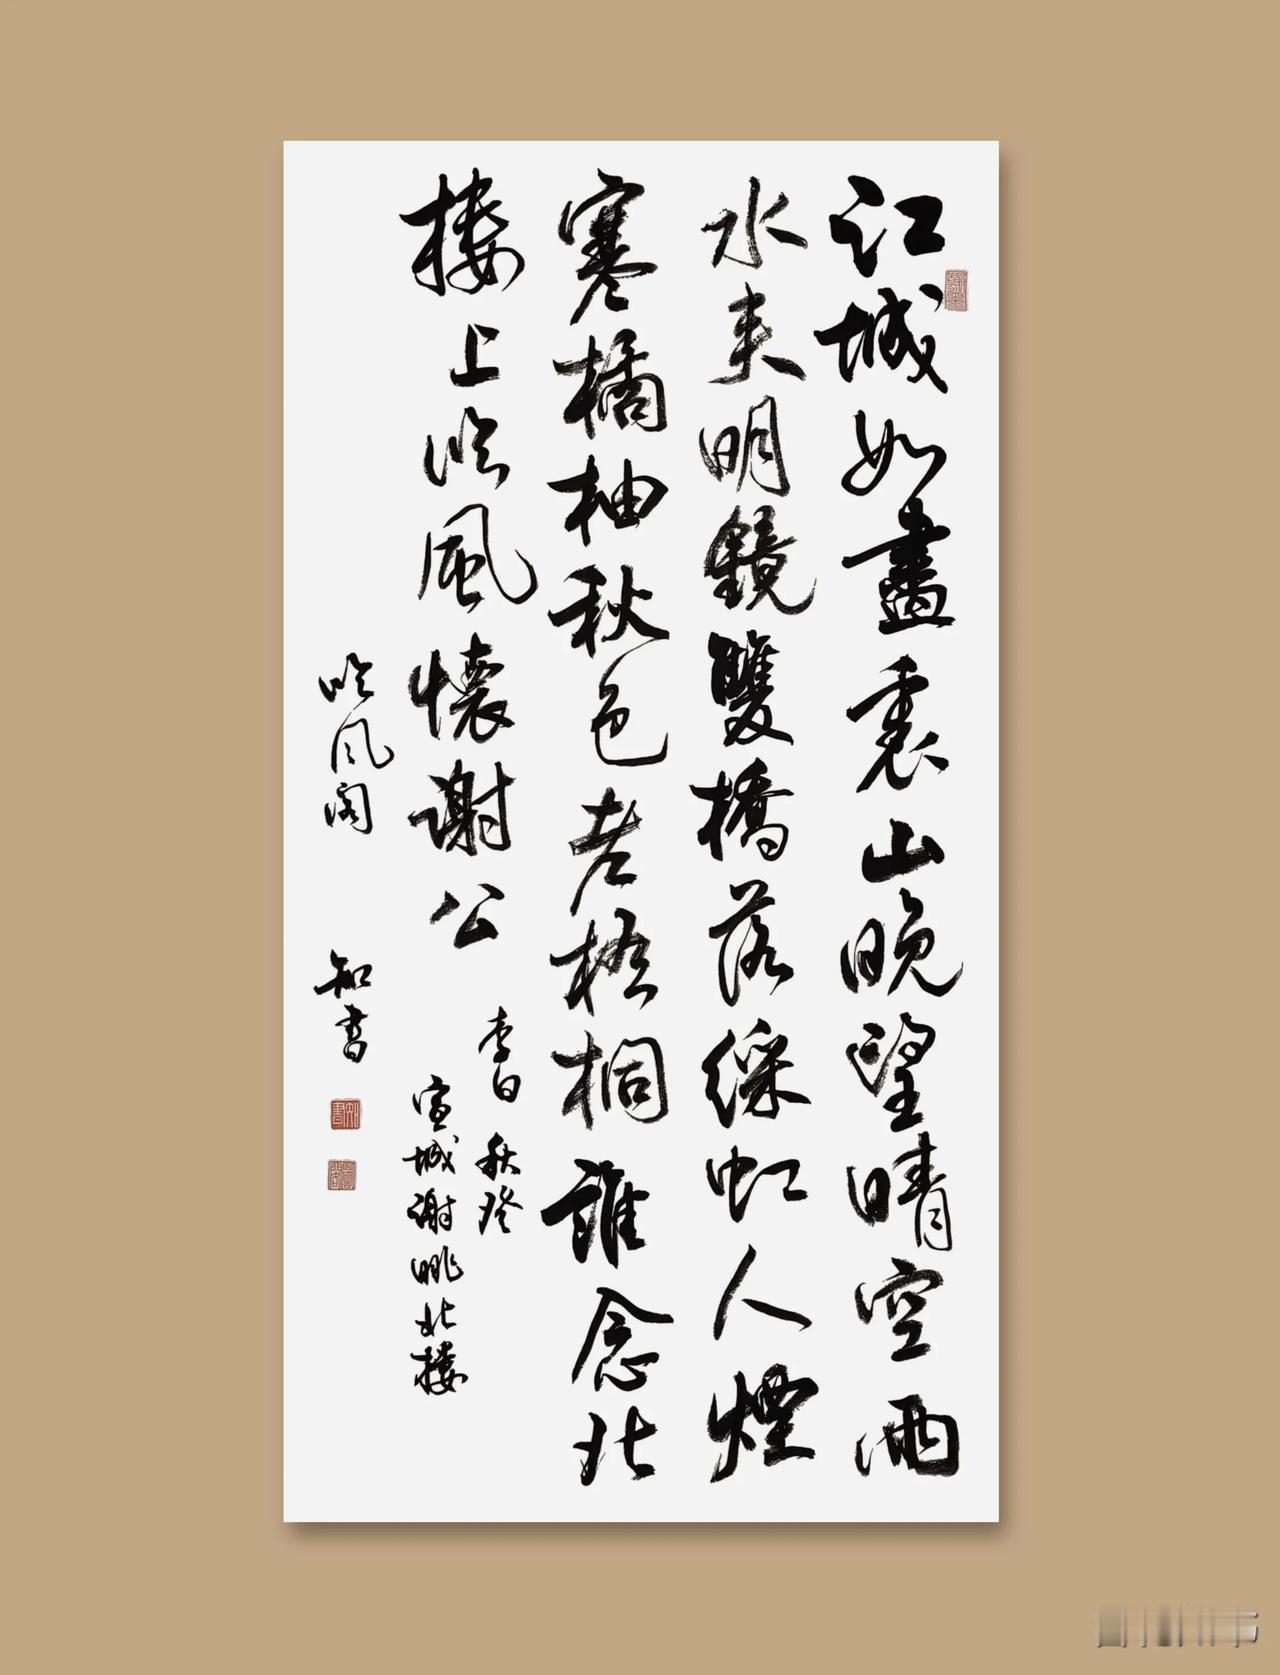 江城如畫裏山晚望晴空兩
水夾明鏡雙橋落綵虹人煙
寒橘柚秋色老梧桐誰念北
樓上臨風懷謝公
李白 秋登
宣城謝朓北樓
吟风阁 知書